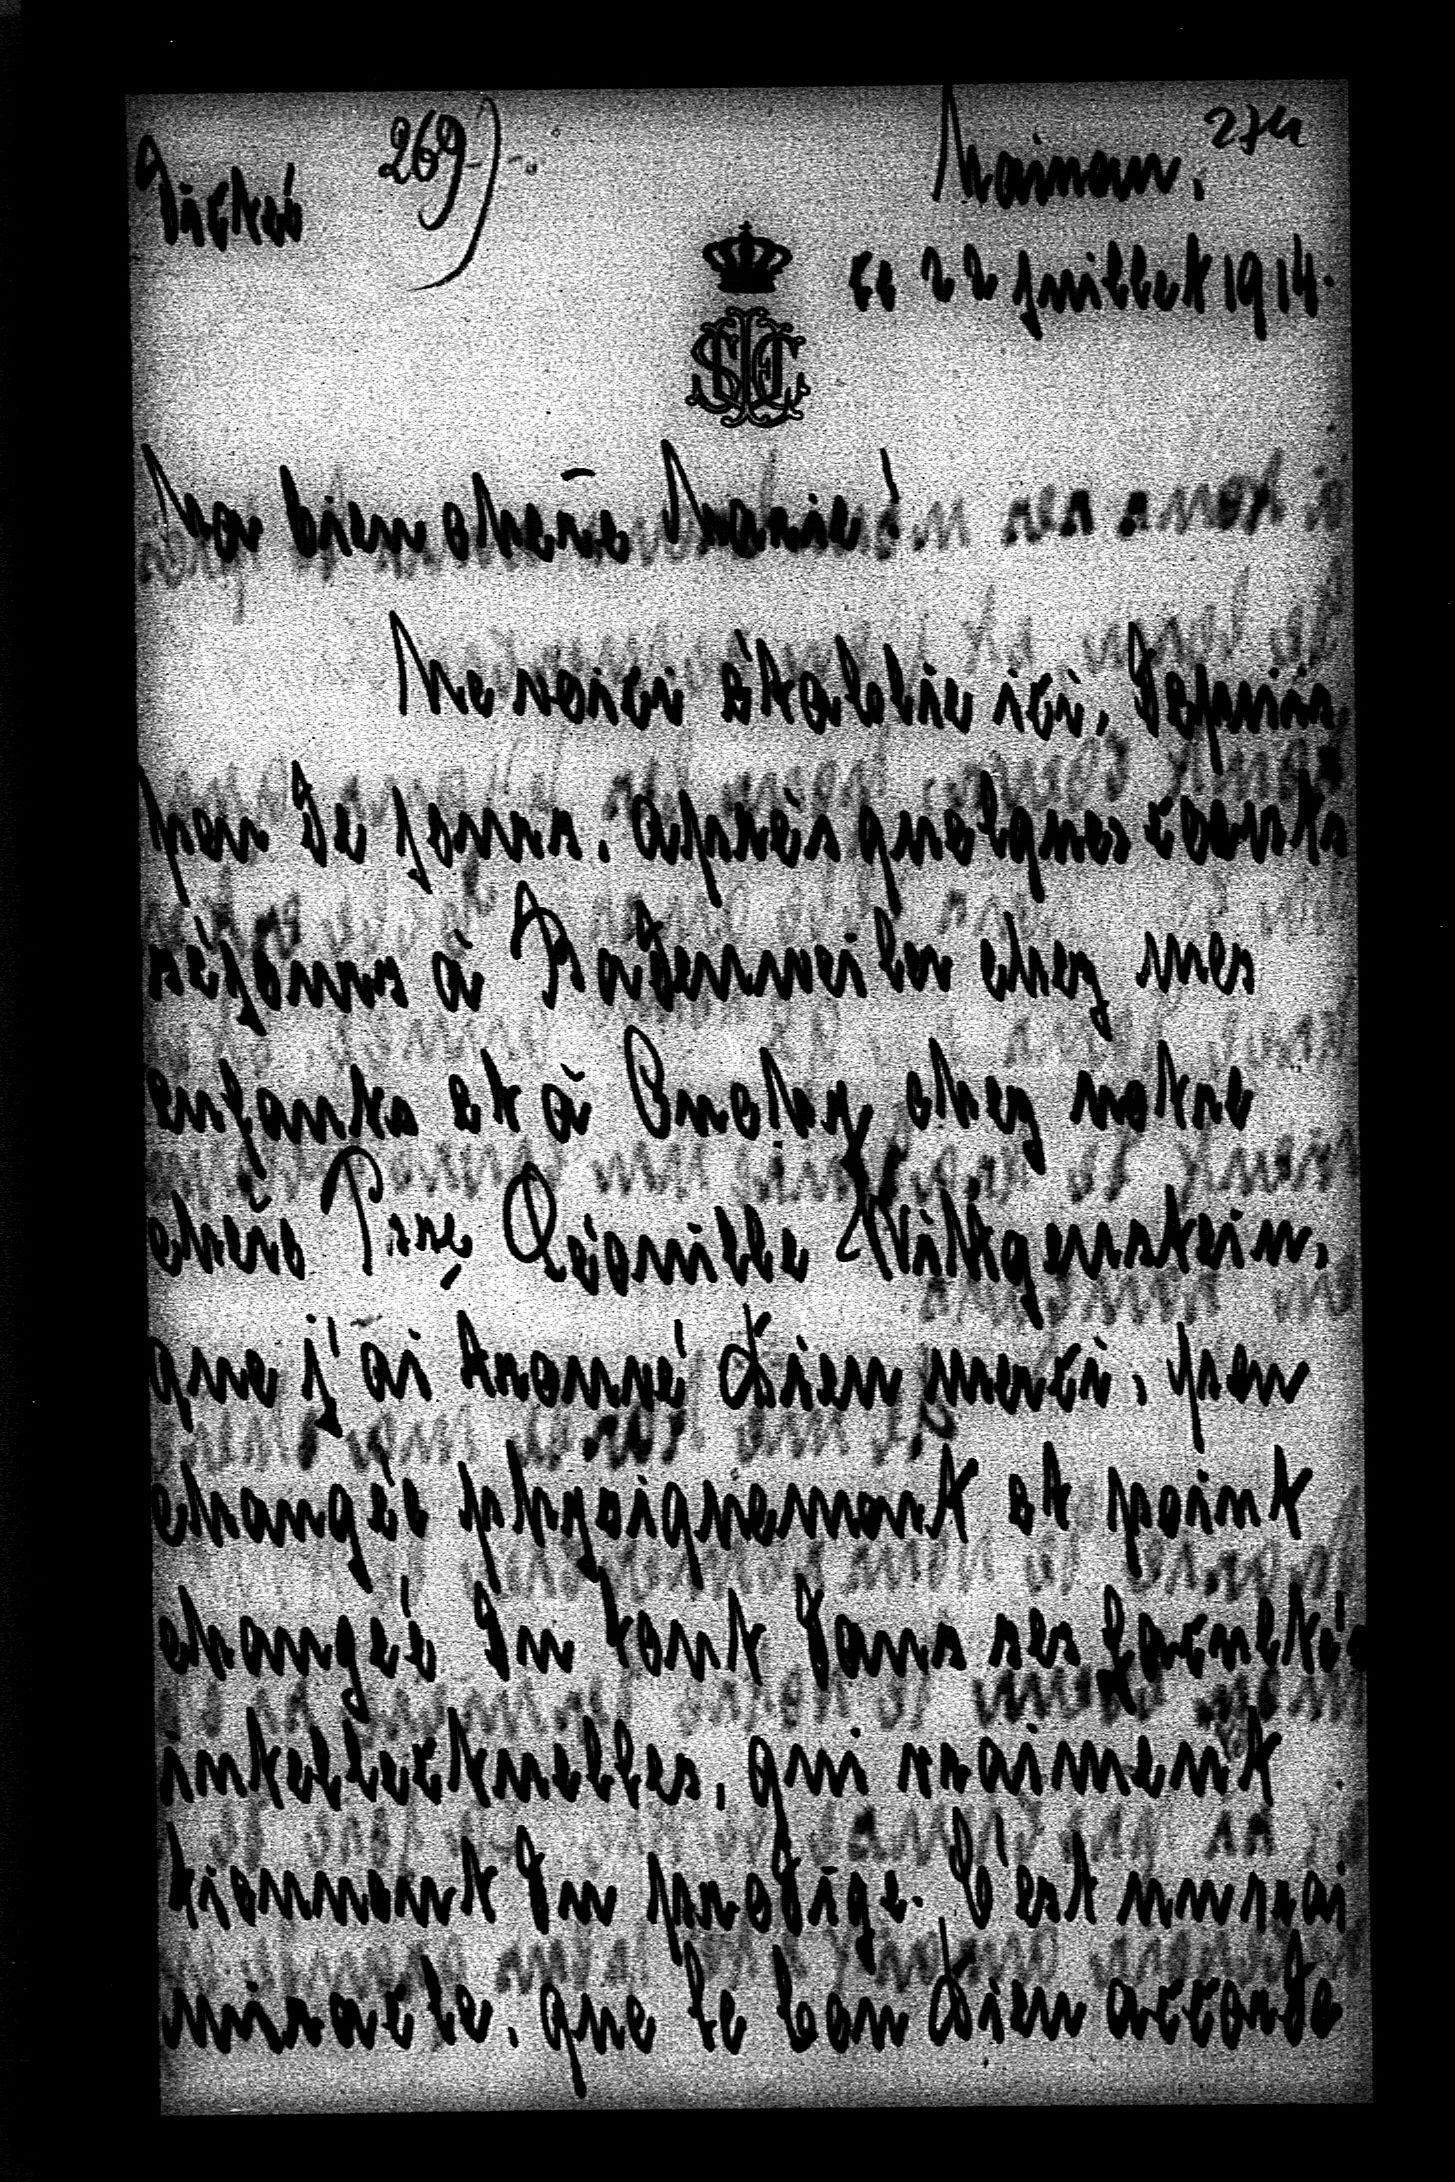 Dictée
269)
274
Mainau.
Le 22 Juillet 1914.
Ma bien chère Marie!
Me voici établie ici, depuis
peu de jours, après quelques courts
séjours à Badenweiler chez mes
enfants et à Ouchy chez notre
chère Psse Léonille Wittgenstein,
que j'ai trouvé Dieu merci, peu
changée physiquement et point
changée du tout dans ses facultés
intellectuelles, qui vraiment
tiennent du prodige. C'est un vrai
miracle, que le bon Dieu accorde